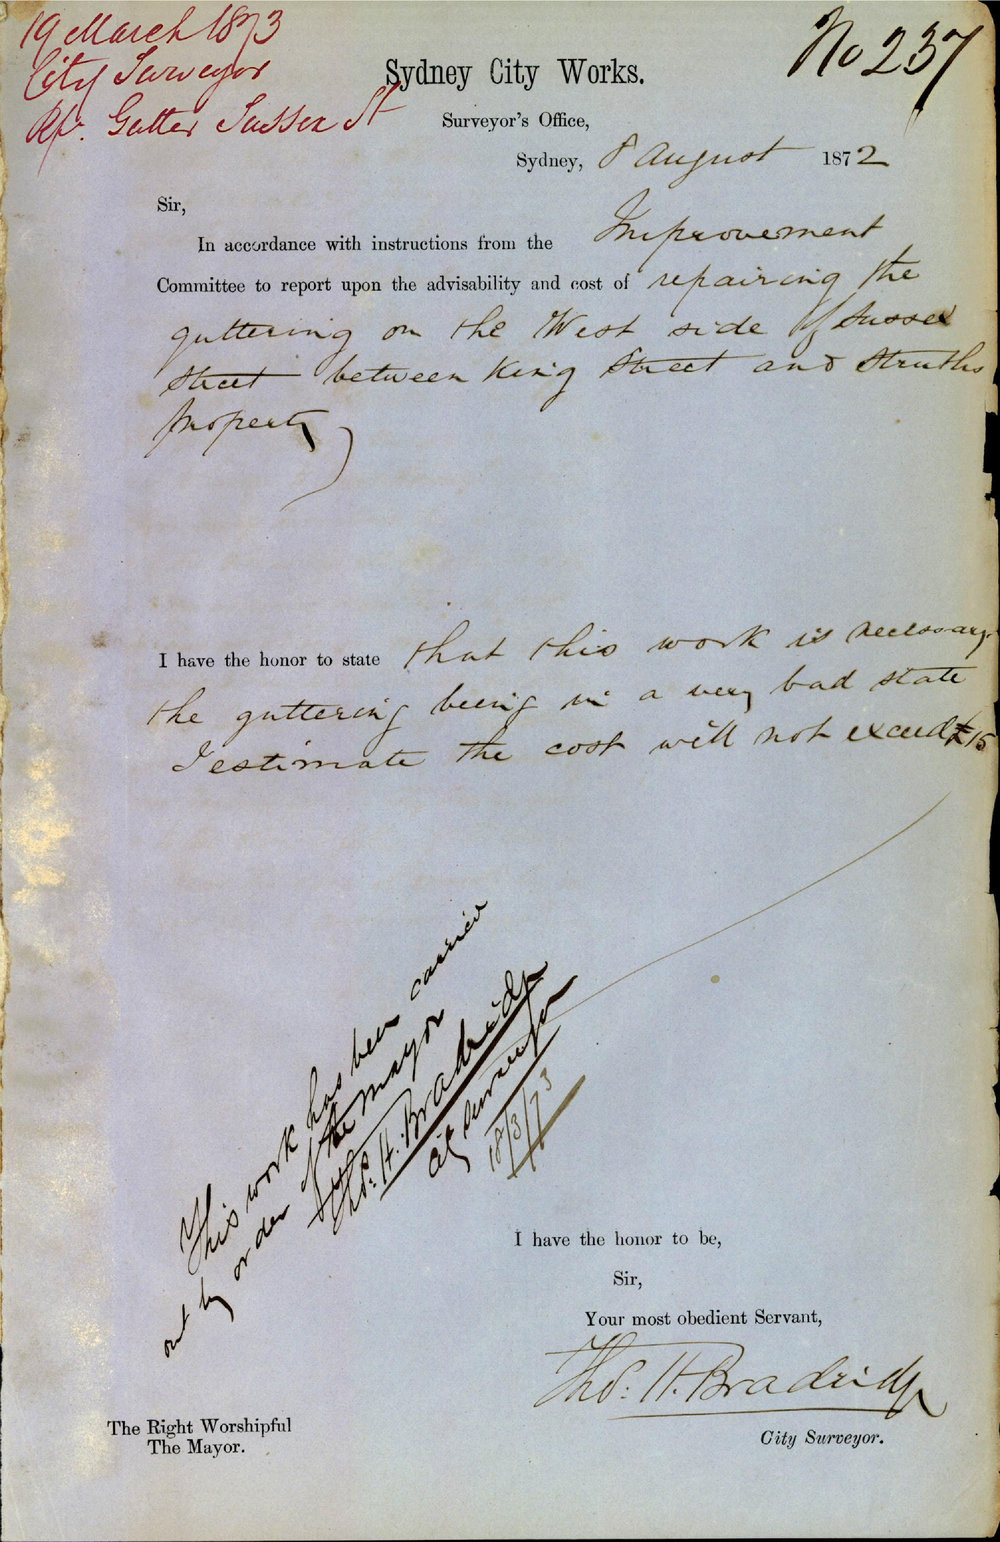 19 March 1873
City Surveyor
Rp. Gutter Sussex St
No 237
Sydney City Works.
Surveyor's Office,
Sydney, 8 August 1872
Sir,
In accordance with instructions from the Improvement
Committee to report upon the advisability and cost of repairing the
guttering on the West side of Sussex
Street between King Street and Struths
property
I have the honor to state that this work is necessary
the guttering being in a very bad state
I estimate the cost will not exceed £15
This work has been carried
out by order of the mayor
Thos. H. Bradridge
City Surveyor
18/3/73
I have the honor to be,
Sir,
Your most obedient Servant,
Thos. H. Bradridge
City Surveyor.
The Right Worshipful
The Mayor.